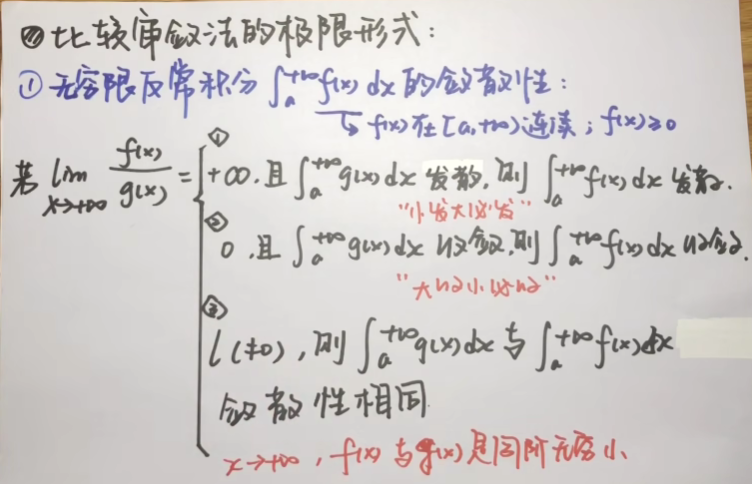 比较审敛法的极限形式：
① 无穷限反常积分 ∫ₐ^{+∞} f(x) dx 的敛散性：
↳ f(x) 在 [a,+∞) 连续；f(x)≥0
若 lim_{x→+∞} f(x)/g(x) = {
① +∞, 且 ∫ₐ^{+∞} g(x) dx 发散, 则 ∫ₐ^{+∞} f(x) dx 发散.
“小发大必发”
② 0, 且 ∫ₐ^{+∞} g(x) dx 收敛, 则 ∫ₐ^{+∞} f(x) dx 收敛.
“大收小必收”
③ l(≠0), 则 ∫ₐ^{+∞} g(x) dx 与 ∫ₐ^{+∞} f(x) dx
敛散性相同
x→+∞, f(x) 与 g(x) 是同阶无穷小